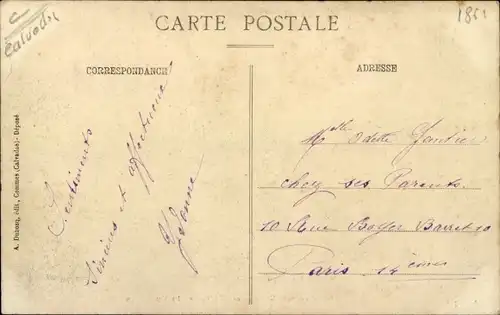 C
Calvados
CARTE POSTALE
CORRESPONDANCE
ADRESSE
A. Dubosq, édit., Commes (Calvados) - Déposé
Sentiments
Sincères et affectueux
Yvonne
Melle Odette Gautier
chez ses Parents
10 Rue Boyer Barret 10
Paris 14 ème